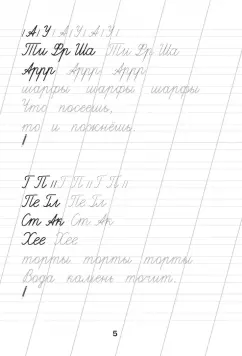 А У А У А У
Ти Фр Ша Ти Фр Ша
Аррр Аррр Аррр
шарфы шарфы шарфы
Что посеешь,
то и пожнёшь.
Г П Г П Г П
Пе Гл Пе Гл
Ст Ак Ст Ак
Хее Хее
торты торты торты
Вода камень точит.
5